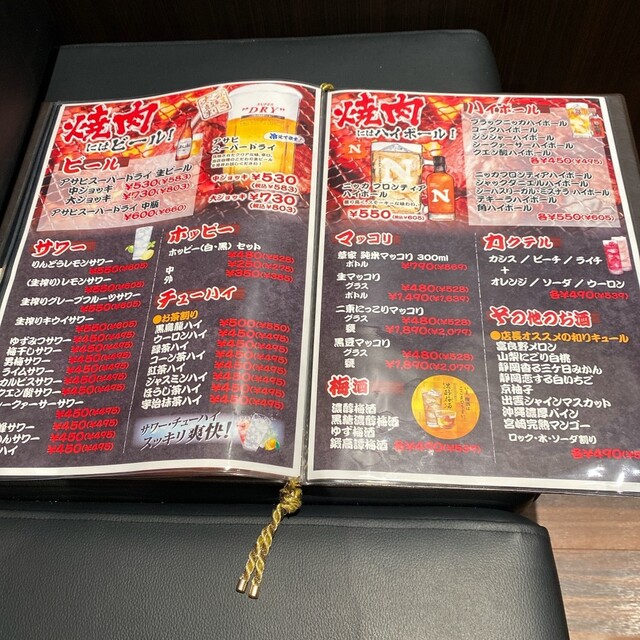 焼肉
にはビール!
SUPER
"DRY"
アサヒ
スーパードライ
中ジョッキ ¥530
(税込¥583)
大ジョッキ ¥730
(税込¥803)
ビール
アサヒスーパードライ 生ビール
中ジョッキ ¥530(¥583)
大ジョッキ ¥730(¥803)
アサヒスーパードライ 中瓶
¥600(¥660)
サワー
りんどうレモンサワー
¥550(¥605)
(生搾り)レモンサワー
¥550(¥605)
生搾りグレープフルーツサワー
¥550(¥605)
生搾りキウイサワー
¥550(¥605)
ゆずみつサワー ¥450(¥495)
梅干しサワー ¥450(¥495)
男梅サワー ¥450(¥495)
ライムサワー ¥450(¥495)
カルピスサワー ¥450(¥495)
クエン酸サワー ¥450(¥495)
シークァーサーサワー
¥450(¥495)
ホッピー
ホッピー(白・黒)セット
¥480(¥528)
中 ¥250(¥275)
外 ¥350(¥385)
チューハイ
●お茶割り
黒烏龍ハイ ¥500(¥550)
ウーロンハイ ¥450(¥495)
緑茶ハイ ¥450(¥495)
コーン茶ハイ ¥450(¥495)
紅茶ハイ ¥450(¥495)
ジャスミンハイ ¥450(¥495)
ほうじ茶ハイ ¥450(¥495)
宇治抹茶ハイ ¥450(¥495)
サワー・チューハイで
スッキリ爽快!
焼肉
にはハイボール!
N
ニッカ フロンティア
ハイボール
¥550(税込¥605)
ハイボール
ブラックニッカハイボール
コークハイボール
ジンジャーハイボール
シークァーサーハイボール
クエン酸ハイボール
各¥450(¥495)
ニッカフロンティアハイボール
ジャックダニエルハイボール
ジンハイボール
テキーラハイボール
角ハイボール
各¥550(¥605)
マッコリ
草家 純米マッコリ 300ml
ボトル ¥790(¥869)
生マッコリ
グラス ¥480(¥528)
ボトル ¥1,490(¥1,639)
二東にっこりマッコリ
グラス ¥480(¥528)
甕 ¥1,890(¥2,079)
黒豆マッコリ
グラス ¥480(¥528)
甕 ¥1,890(¥2,079)
カクテル
カシス / ピーチ / ライチ
+
オレンジ / ソーダ / ウーロン
各¥490(¥539)
梅酒
濃醇梅酒
黒糖濃醇梅酒
ゆず梅酒
鍛高譚梅酒
各¥480(¥528)
その他のお酒
●店長オススメの和リキュール
富良野メロン
山梨にごり白桃
静岡香る三ケ日みかん
静岡恋する白いちご
京柚子
出雲シャインマスカット
沖縄濃厚パイン
宮崎完熟マンゴー
ロック・水・ソーダ割り
各¥490(¥539)